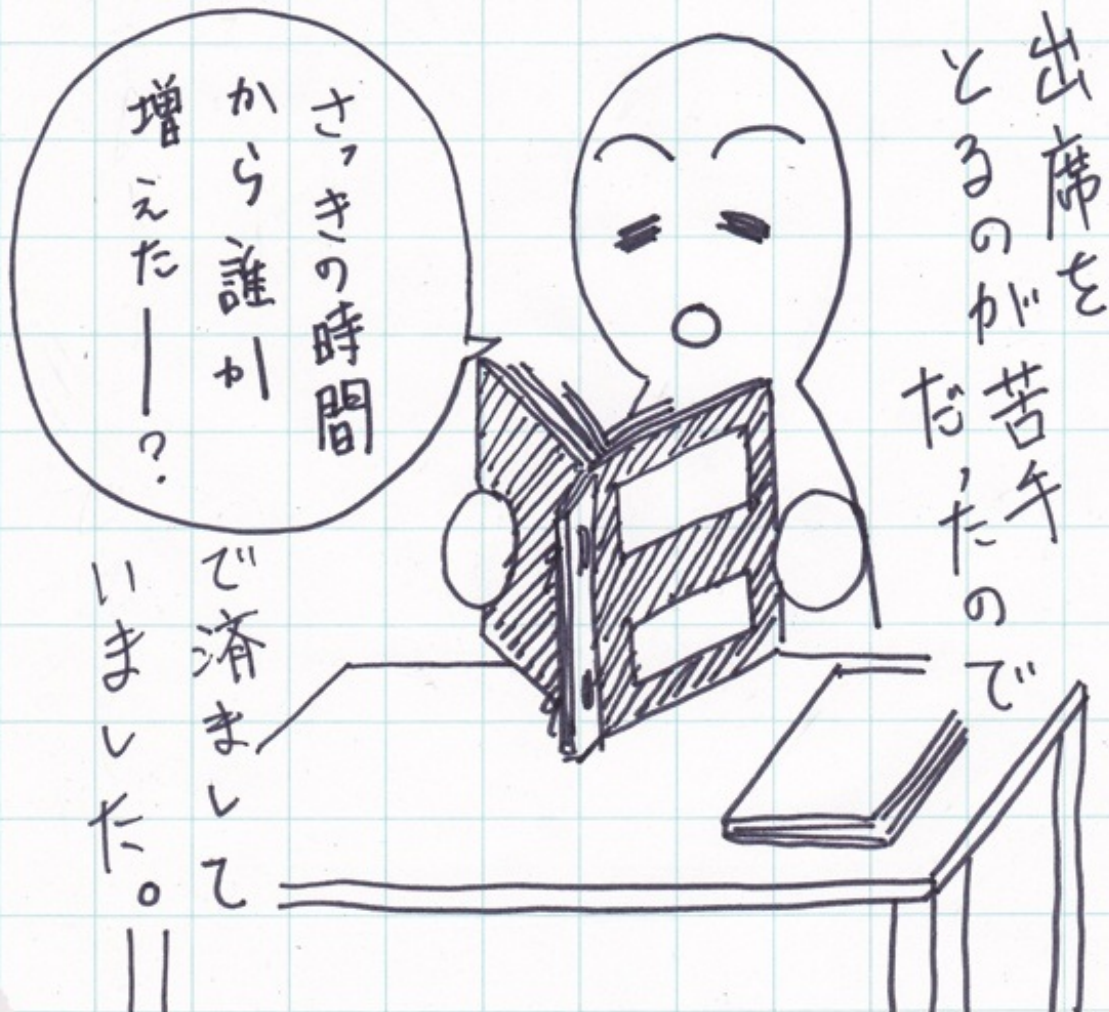 出席を
とるのが苦手
だったので
さっきの時間
から誰か
増えたー？
で済まして
いました。